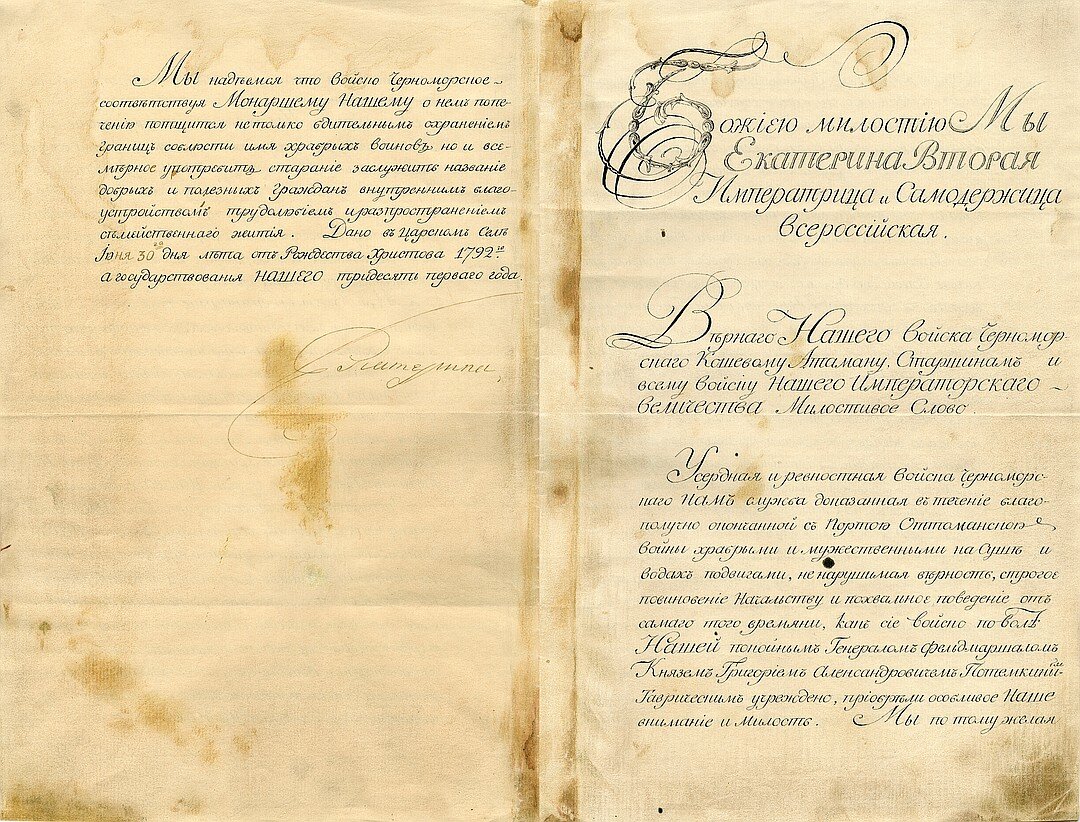 Мы надѣемся что Войско Черноморское
соотвѣтствуя Монаршему Нашему о немъ попе-
ченію потщится не только бдительнымъ охраненіемъ
границъ соблюсти имя храбрыхъ воиновъ но и все-
мѣрное употребить стараніе заслужить названіе
добрыхъ и полезныхъ гражданъ внутреннимъ благо-
устройствомъ трудолюбіемъ и распространеніемъ
сѣмейственнаго житія. Дано въ Царскомъ Селѣ
Іюня 30го дня лѣта отъ Рождества Христова 1792го
а государствованія НАШЕГО тридесять перваго года.
Екатерина
Божіею милостію Мы
Екатерина Вторая
Императрица и Самодержица
Всероссійская.
Вѣрнаго Нашего Войска Черномор-
скаго Кошевому Атаману, Старшинамъ и
всему Войску Нашего Императорскаго
Величества Милостивое Слово.
Усердная и ревностная Войска Черноморс-
каго Намъ служба доказанная въ теченіе благо-
получно оконченной съ Портою Оттоманскою
войны храбрыми и мужественными на Сушѣ и
водахъ подвигами, не нарушимая вѣрность, строгое
повиновеніе Начальству и похвальное поведеніе отъ
самаго того времяни, какъ сіе Войско по Волѣ
Нашей покойнымъ Генераломъ Фельдмаршаломъ
Княземъ Григоріемъ Александровичемъ Потемкинымъ
Таврическимъ учреждено, пріобрѣли особливое Наше
вниманіе и Милость. Мы по тому желая